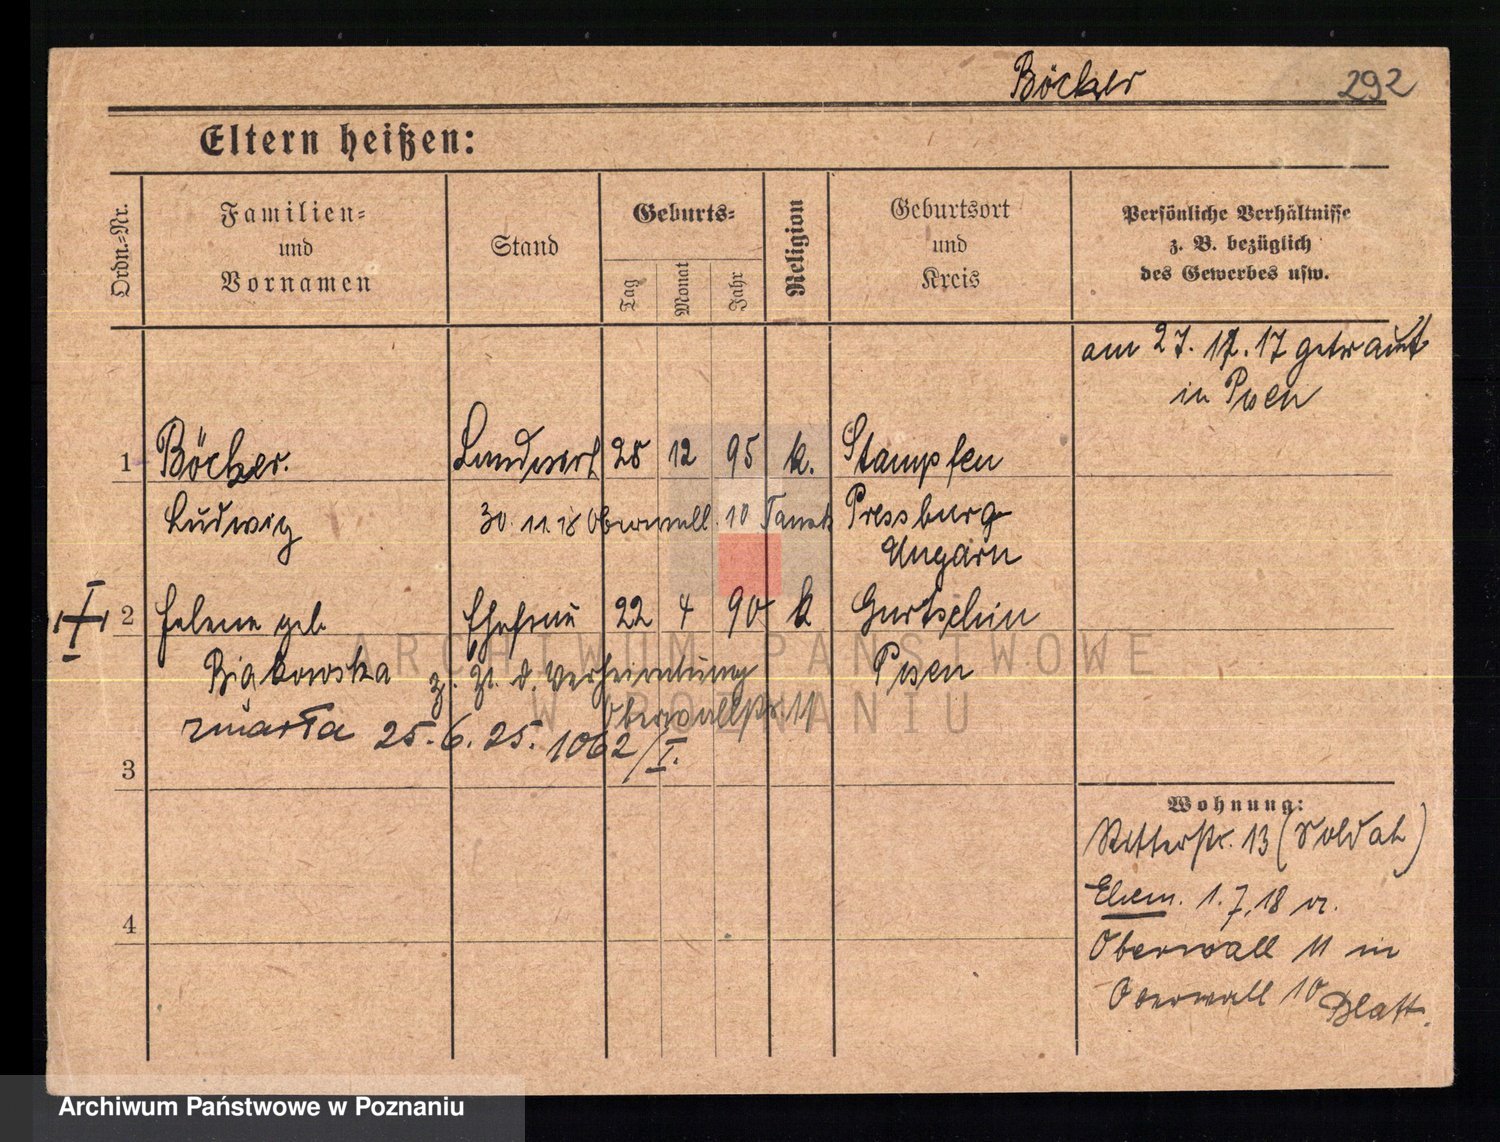 Böcker
292
Eltern heißen:
Ordn.=Nr.
Familien=
und
Vornamen
Stand
Geburts=
Tag
Monat
Jahr
Religion
Geburtsort
und
Kreis
Persönliche Verhältnisse
z. B. bezüglich
des Gewerbes usw.
am 27. 12. 17 getraut
in Posen
1 Böcker. Landwirt 28 12 95 k. Stampfen
Ludwig 30. 11. 18 Oberwall. 10 Pressburg
Ungarn
2 Helene geb Ehefrau 22 4 90 k Gurtschin
Bigkowska z. Zt. d. Verheiratung Posen
Oberwallstr. 11
zmarła 25. 6. 25. 1062/I.
3
Wohnung:
Ritterstr. 13 (Soldat)
Ehem. 1. 7. 18 v.
4
Oberwall 11 in
Oberwall 10 Blatt.
ARCHIWUM PAŃSTWOWE
W POZNANIU
Archiwum Państwowe w Poznaniu